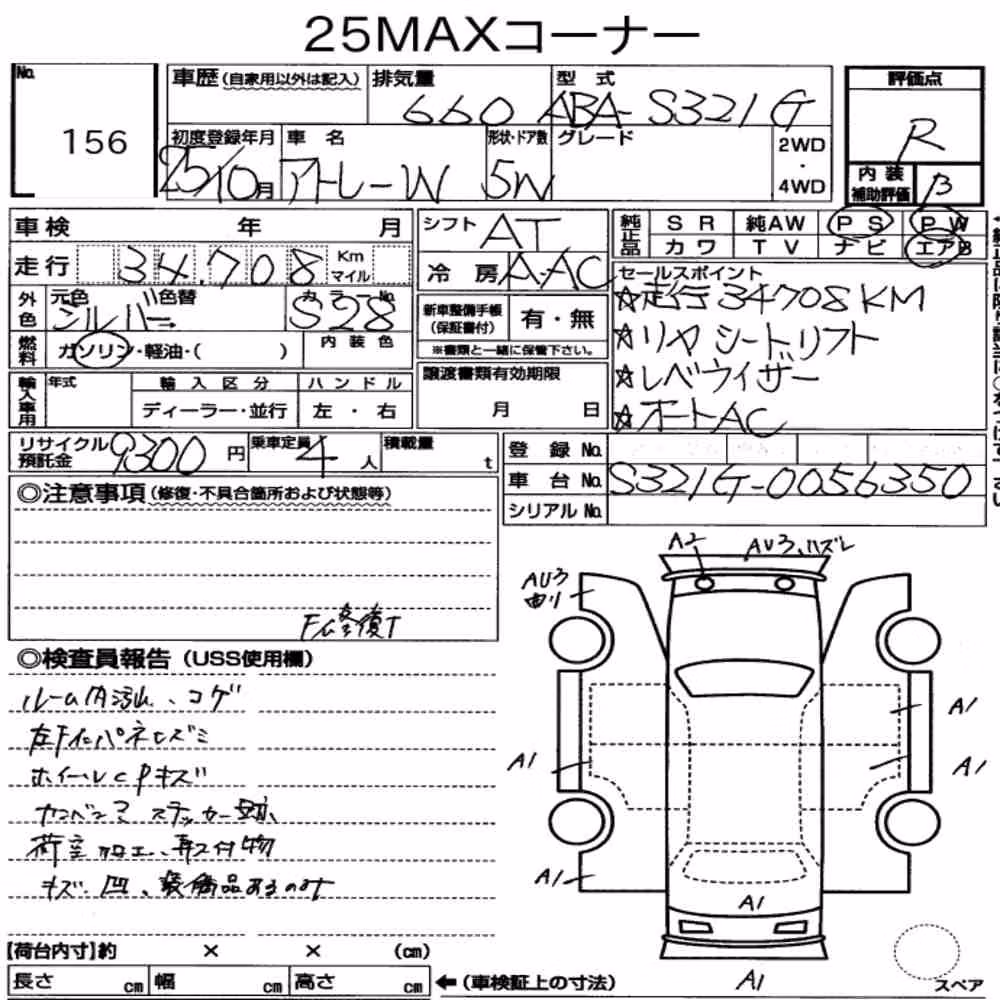 25MAXコーナー
No. 156
車歴 (自家用以外は記入) 排気量 660 型式 ABA-S321G 評価点 R
初度登録年月 25/10月 車名 アトレーW 形状・ドア数 5W グレード 2WD・4WD
内装補助評価 B
車検 年 月 シフト AT 純正品 SR 純AW PS PW
カワ TV ナビ エアB
走行 34,708 Km マイル 冷房 A-AC
外色 元色 シルバー 色替 カラーNo. S28
新車整備手帳(保証書付) 有・無
※書類と一緒に保管下さい。
燃料 ガソリン・軽油・( ) 内装色
セールスポイント
☆走行34708KM
☆リヤシートリフト
☆レベライザー
☆オートAC
輸入車用 年式 輸入区分 ハンドル
ディーラー・並行 左・右
譲渡書類有効期限
月 日
リサイクル預託金 9300円 乗車定員 4人 積載量 t
登録No.
車台No. S321G-0056350
シリアルNo.
◎注意事項(修復・不具合箇所および状態等)
◎検査員報告(USS使用欄)
ルーム内汚れ、コゲ
ホイールcPキズ
ステッカー跡
荷室加工、取付物
キズ・凹、装備品あるのみ
A2 AU3、ハズレ
AU3
曲リ
A1
A1
A1
A1
A1
A1
【荷台内寸】約 × × (cm)
長さ cm 幅 cm 高さ cm ←(車検証上の寸法)
スペア